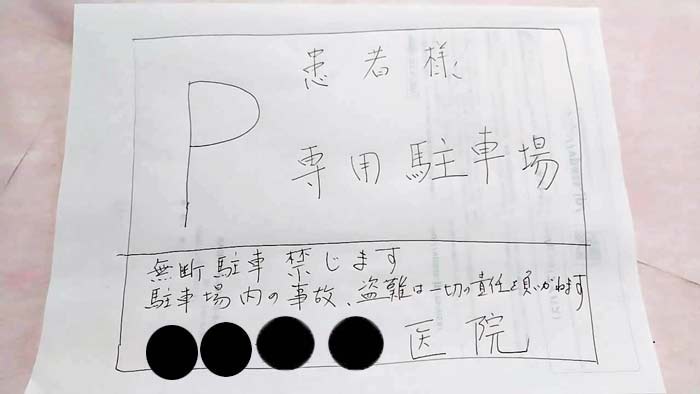 P
患者様
専用駐車場
無断駐車禁じます
駐車場内の事故、盗難は一切の責任を負いかねます
医院